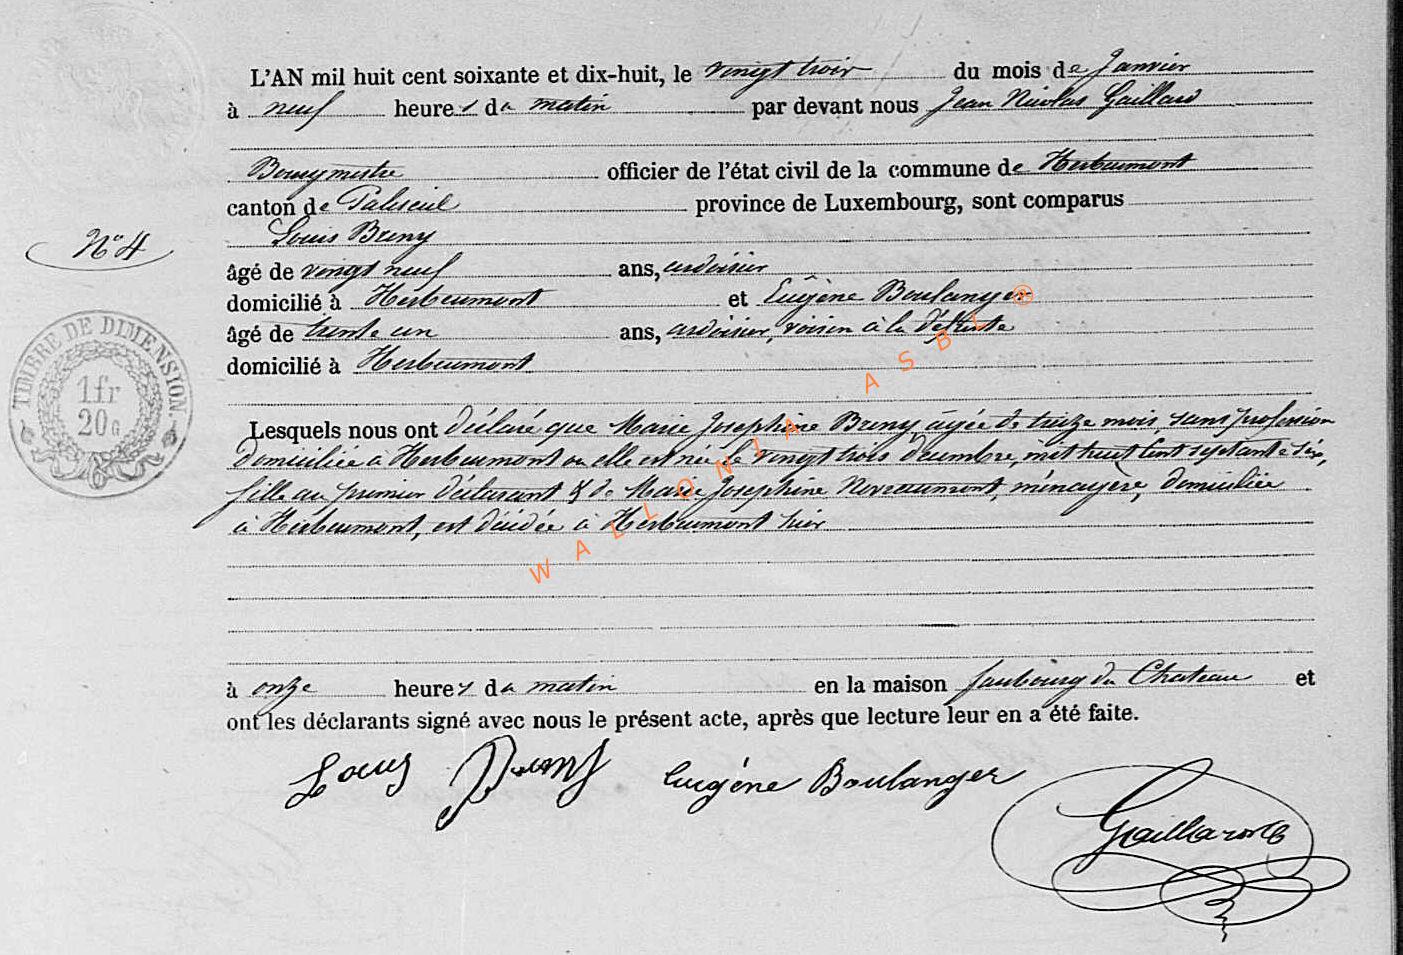 L'AN mil huit cent soixante et dix-huit, le vingt trois du mois de Janvier
à neuf heures du matin par devant nous Jean Nicolas Gaillard
Bourgmestre officier de l'état civil de la commune de Herbeumont
canton de Paliseul province de Luxembourg, sont comparus
Louis Briny
N° 4
âgé de vingt neuf ans, ardoisier
domicilié à Herbeumont et Eugène Boulanger
âgé de trente un ans, ardoisier, voisin à la défunte
domicilié à Herbeumont
TIMBRE DE DIMENSION.
1fr
20c
Lesquels nous ont déclaré que Marie Josephine Briny âgée de treize mois sans profession
domiciliée à Herbeumont où elle est née le vingt trois décembre, mil huit cent septante six,
fille au premier déclarant & de Marie Josephine menagère, domiciliée
à Herbeumont, est décédée à Herbeumont hier
à onze heures du matin en la maison faubourg du Chateau et
ont les déclarants signé avec nous le présent acte, après que lecture leur en a été faite.
Louis Briny Eugène Boulanger
Gaillard
WALLONIA ASBL ®